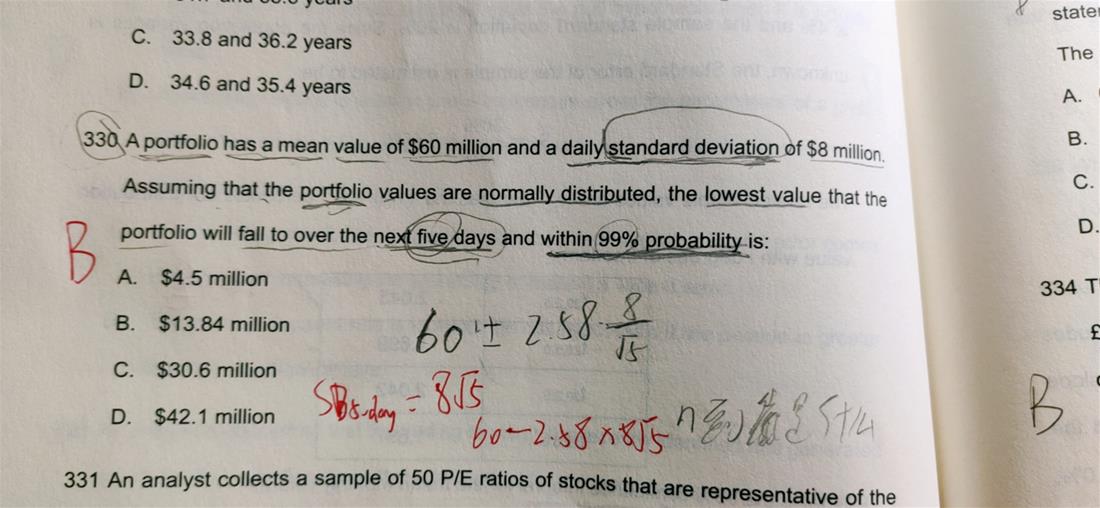 C. 33.8 and 36.2 years
D. 34.6 and 35.4 years
330 A portfolio has a mean value of $60 million and a daily standard deviation of $8 million.
Assuming that the portfolio values are normally distributed, the lowest value that the
portfolio will fall to over the next five days and within 99% probability is:
B
A. $4.5 million
B. $13.84 million
C. $30.6 million
D. $42.1 million
60 ± 2.58 8/√5
= 8√5
60-2.58×8√5
331 An analyst collects a sample of 50 P/E ratios of stocks that are representative of the
The
A.
B.
C.
D.
334
£
B